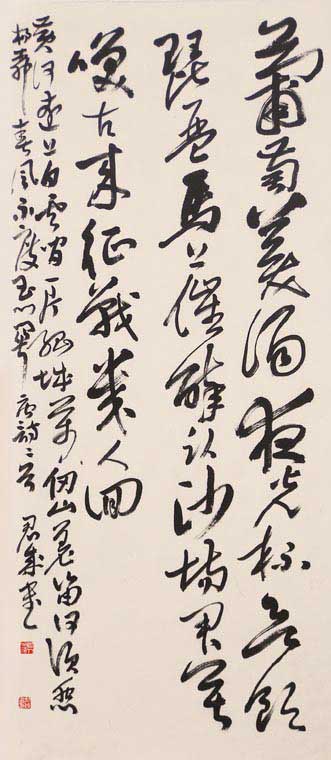 葡萄美酒夜光杯欲飲
琵琶馬上催醉臥沙場君莫
笑古來征戰幾人回
黃河遠上白雲間一片孤城萬仞山羌笛何須怨
楊柳春風不度玉門關 唐詩二首